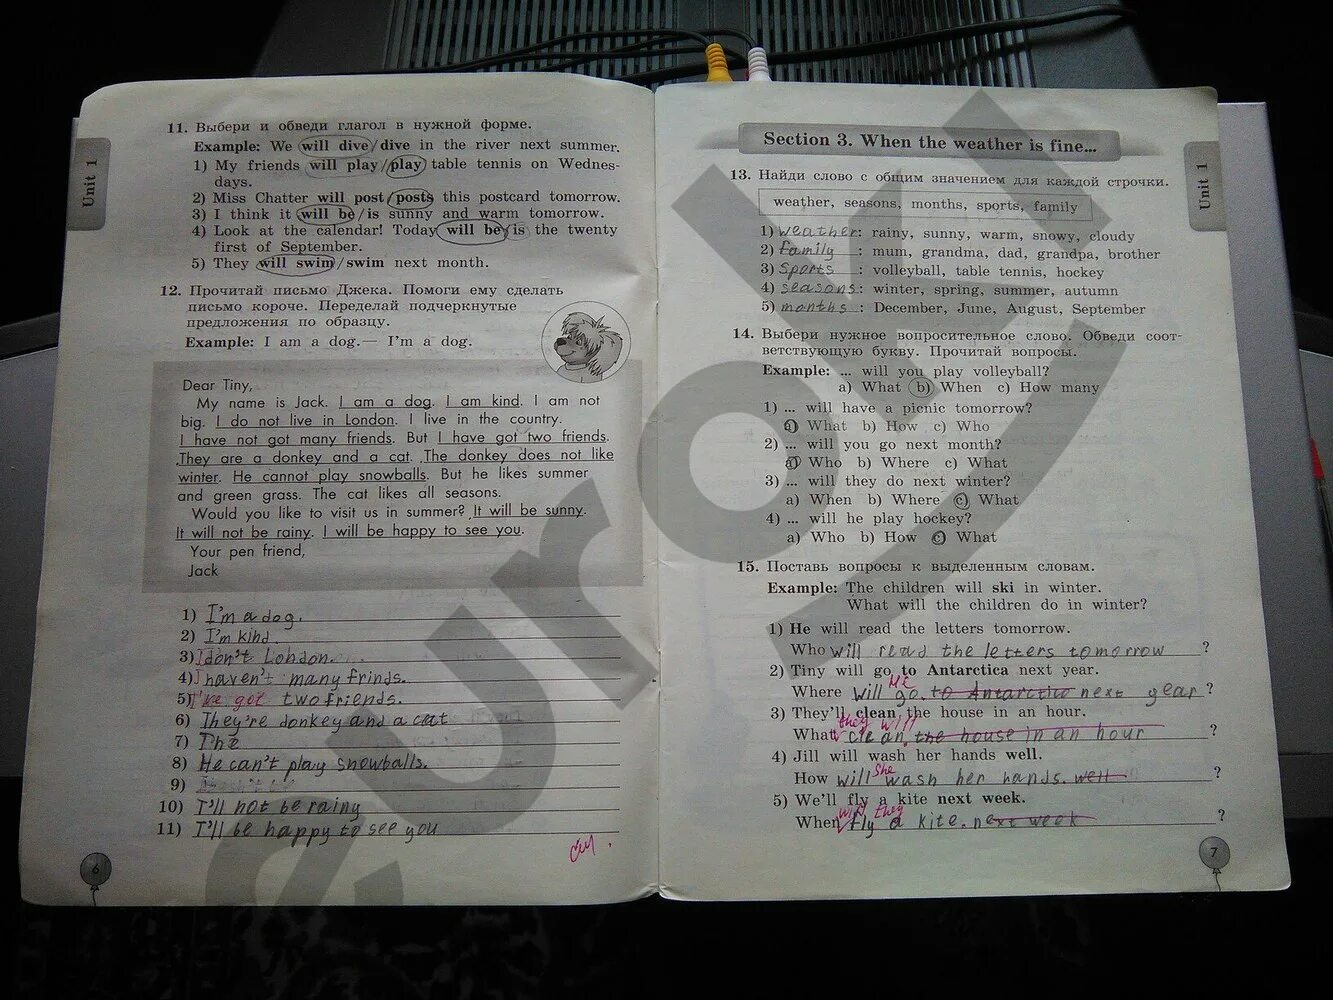 Unit 1
11. Выбери и обведи глагол в нужной форме.
Example: We will dive/dive in the river next summer.
1) My friends will play/play table tennis on Wednes-
days.
2) Miss Chatter will post/posts this postcard tomorrow.
3) I think it will be/is sunny and warm tomorrow.
4) Look at the calendar! Today will be/is the twenty
first of September.
5) They will swim/swim next month.
12. Прочитай письмо Джека. Помоги ему сделать
письмо короче. Переделай подчеркнутые
предложения по образцу.
Example: I am a dog.— I'm a dog.
Dear Tiny,
My name is Jack. I am a dog. I am kind. I am not
big. I do not live in London. I live in the country.
I have not got many friends. But I have got two friends.
They are a donkey and a cat. The donkey does not like
winter. He cannot play snowballs. But he likes summer
and green grass. The cat likes all seasons.
Would you like to visit us in summer? It will be sunny.
It will not be rainy. I will be happy to see you.
Your pen friend,
Jack
1) I'm a dog.
2) I'm kind.
3) I don't London.
4) I haven't many frinds.
5) I've got two friends.
6) They're donkey and a cat
7) The
8) He can't play snowballs.
9)
10) I'll not be rainy
11) I'll be happy to see you
6
Section 3. When the weather is fine...
Unit 1
13. Найди слово с общим значением для каждой строчки.
weather, seasons, months, sports, family
1) weather: rainy, sunny, warm, snowy, cloudy
2) family : mum, grandma, dad, grandpa, brother
3) Sports : volleyball, table tennis, hockey
4) seasons: winter, spring, summer, autumn
5) months : December, June, August, September
14. Выбери нужное вопросительное слово. Обведи соот-
ветствующую букву. Прочитай вопросы.
Example: ... will you play volleyball?
a) What b) When c) How many
1) ... will have a picnic tomorrow?
a) What b) How c) Who
2) ... will you go next month?
a) Who b) Where c) What
3) ... will they do next winter?
a) When b) Where c) What
4) ... will he play hockey?
a) Who b) How c) What
15. Поставь вопросы к выделенным словам.
Example: The children will ski in winter.
What will the children do in winter?
1) He will read the letters tomorrow.
Who will read the letters tomorrow ?
2) Tiny will go to Antarctica next year.
Where will he go to Antarctic next year ?
3) They'll clean the house in an hour.
What will they clean the house in an hour ?
4) Jill will wash her hands well.
How will she wash her hands. well ?
5) We'll fly a kite next week.
When will they fly a kite. next week ?
7
euroki